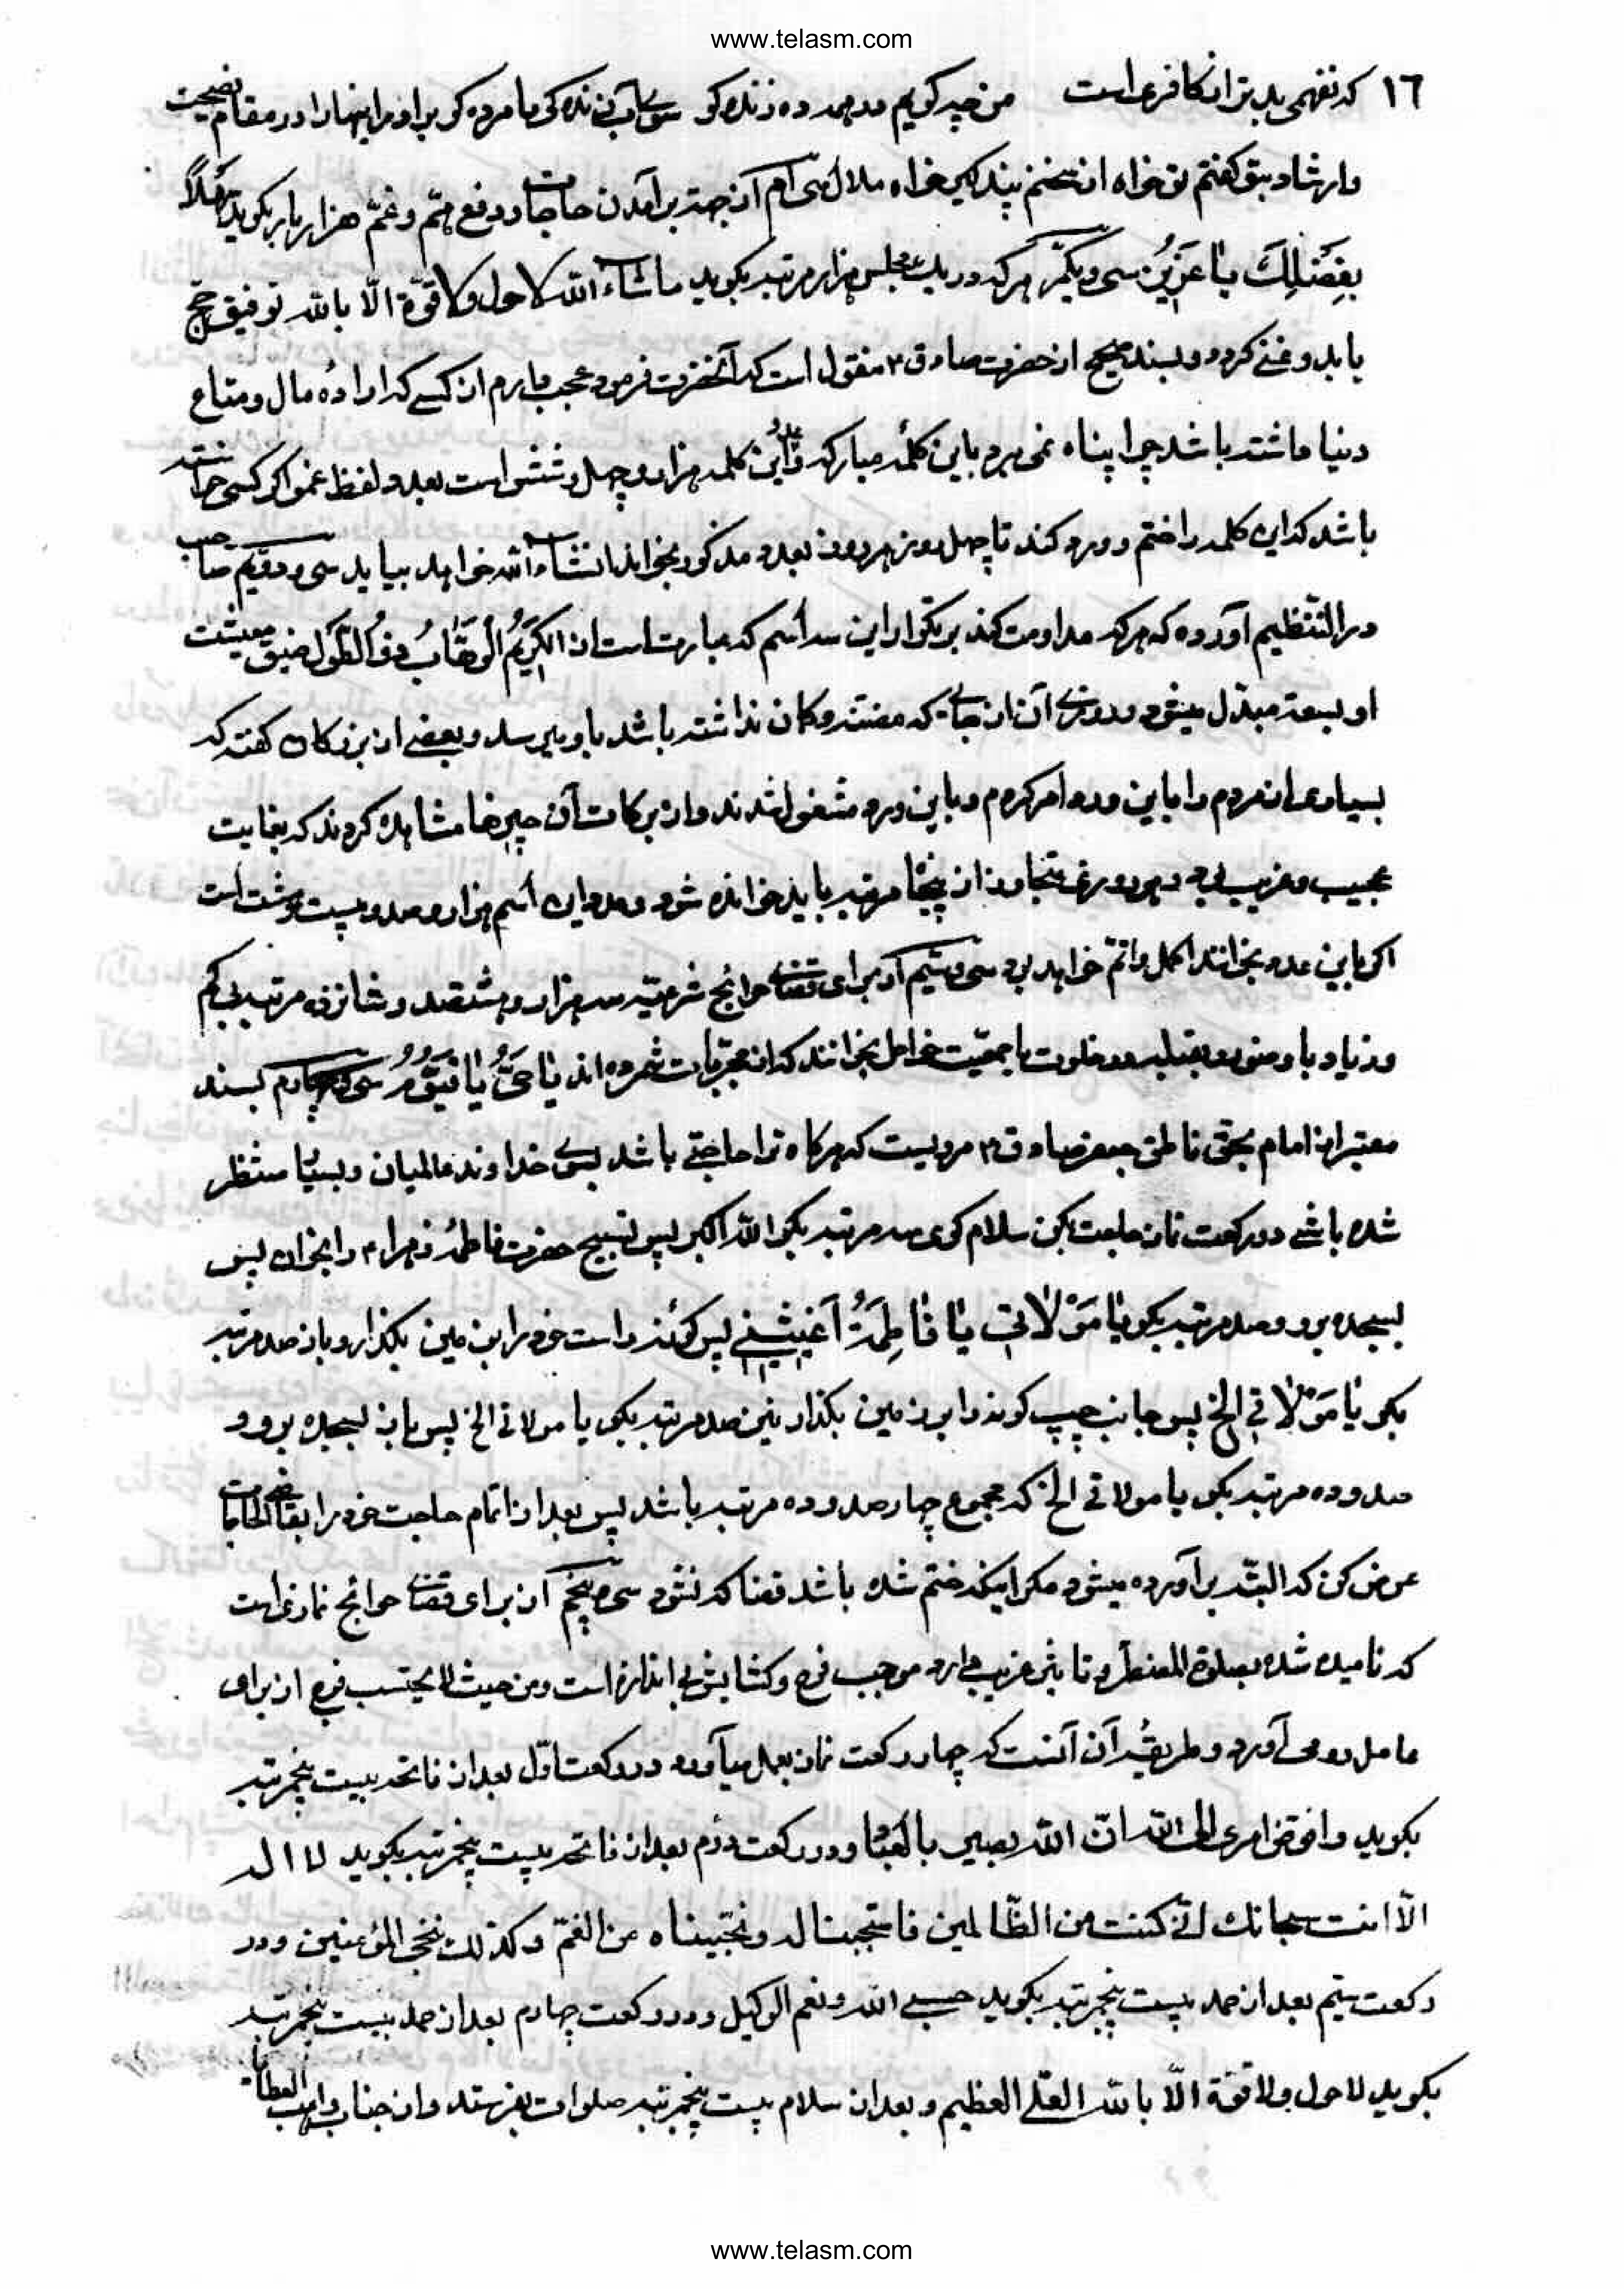 www.telasm.com
١٦ که نفهمی بدتر از کافری است من چه گویم در همه ده زنده کو سوی آب زندگی پا مرده کو برادر اینها را در مقام نصیحت
وارشاد بتو گفتم تو خواه از سخنم پند گیر خواه ملال سی ام از جهته برآمدن حاجات ودفع همّ وغمّ هزار بار بگوید
بِفَضْلِكَ یا عَزیزُ سی ویکم هرکه در یک مجلس هزار مرتبه بگوید ماشاء الله لاحول ولا قوّة الّا بالله توفیق حج
یابد وغنی گردد وبسند صحیح از حضرت صادق ۴ منقول است که آنحضرت فرمود عجب دارم از کسی که اراده مال ومتاع
دنیا داشته باشد چرا پناه نمی برد باین کلمهٔ مبارکه و این کلمه هزار وچهل وشش است بعدد لفظ غمو اگر کسی خواسته
باشد که این کلمه را ختم و ورد کند تا چهل روز هر روز بعدد مذکور بخواند انشاء الله خواهد بیابد سی ودوّیم صاحب
درالنّظیم آورده که هرکه مداومت کند بر تکرار این سه اسم که عبارتست از الکَریمُ الوَهّابُ ذُو الطَّول ضیق معیشت
او بسعة مبدّل میشود وروزی آن از جائیکه مضنّه وگمان نداشته باشد باو میرسد وبعضی از بزرگان گفته که
بسیاری از مردم را باین ورد امر کردم وباین ورد مشغول شدند واز برکات آن چیزها مشاهده کردند که بغایت
عجیب وغریب بود وهر روزی متجاوز از پنجاه مرتبه باید خوانده شود وعدد این اسم هزار وصد وبیست وهشت است
اگر باین عدد بخوانند اکمل واتمّ خواهد بود سی وسیّم از برای قضاء حوائج شرعیّه سه هزار وهشتصد وشانزده مرتبه بی کم
وزیاد با وضو رو بقبله در خلوت با جمعیّت خواطر بخوانند که از مجرّبات شمرده اند یا حَیُّ یا قَیُّومُ سی وچهارم بسند
معتبر از امام بحق ناطق جعفر صادق ۴ مرویست که هرگاه ترا حاجتی باشد بسوی خداوند عالمیان وبسیار مضطر
شده باشی دو رکعت نماز حاجت بکن سلام گوی سه مرتبه بگو الله اکبر پس تسبیح حضرت فاطمهٔ زهرا ۴ را بخوان پس
بسجده برو وصد مرتبه بگو یا مَوْلاتی یا فاطِمَةُ اَغیثینی پس گونه راست خود را بزمین بگذار وباز صد مرتبه
بگو یا مَوْلاتی الخ پس جانب چپ گونه را بر زمین بگذار نیز صد مرتبه بگو یا مولاتی الخ پس باز بسجده برو و
صد وده مرتبه بگو یا مولاتی الخ که مجموع چهار صد وده مرتبه باشد پس بعد از اتمام حاجت خود را بقاضی الحاجات
عرض کن که البتّه برآورده میشود مگر اینکه ختم شده باشد قضا که نشود سی وپنجم از برای قضاء حوائج نمازی است
که نامیده شده بصلوة المضطر وتاثیر غریب دارد موجب فرج وگشایش بی اندازه است ومن حیث لا یحتسب فرج از برای
عامل رو می آورد وطریقهٔ آن آنست که چهار رکعت نماز بعمل میآورد در رکعت اوّل بعد از فاتحه بیست پنجمرتبه
بگوید وافوّض امری الی الله انّ الله بصیر بالعباد ودر رکعت دوّم بعد از فاتحه بیست پنجمرتبه بگوید لا اله
الّا انت سبحانک انّی کنت من الظّالمین فاستجبنا له ونجّیناه من الغمّ وکذلک ننجی المؤمنین ودر
رکعت سیّم بعد از حمد بیست پنجمرتبه بگوید حسبی الله ونعم الوکیل ودر رکعت چهارم بعد از حمد بیست پنجمرتبه
بگوید لاحول ولا قوّة الّا بالله العلّی العظیم وبعد از سلام بیست پنجمرتبه صلوات بفرستد واز جناب واهب العطایا
www.telasm.com